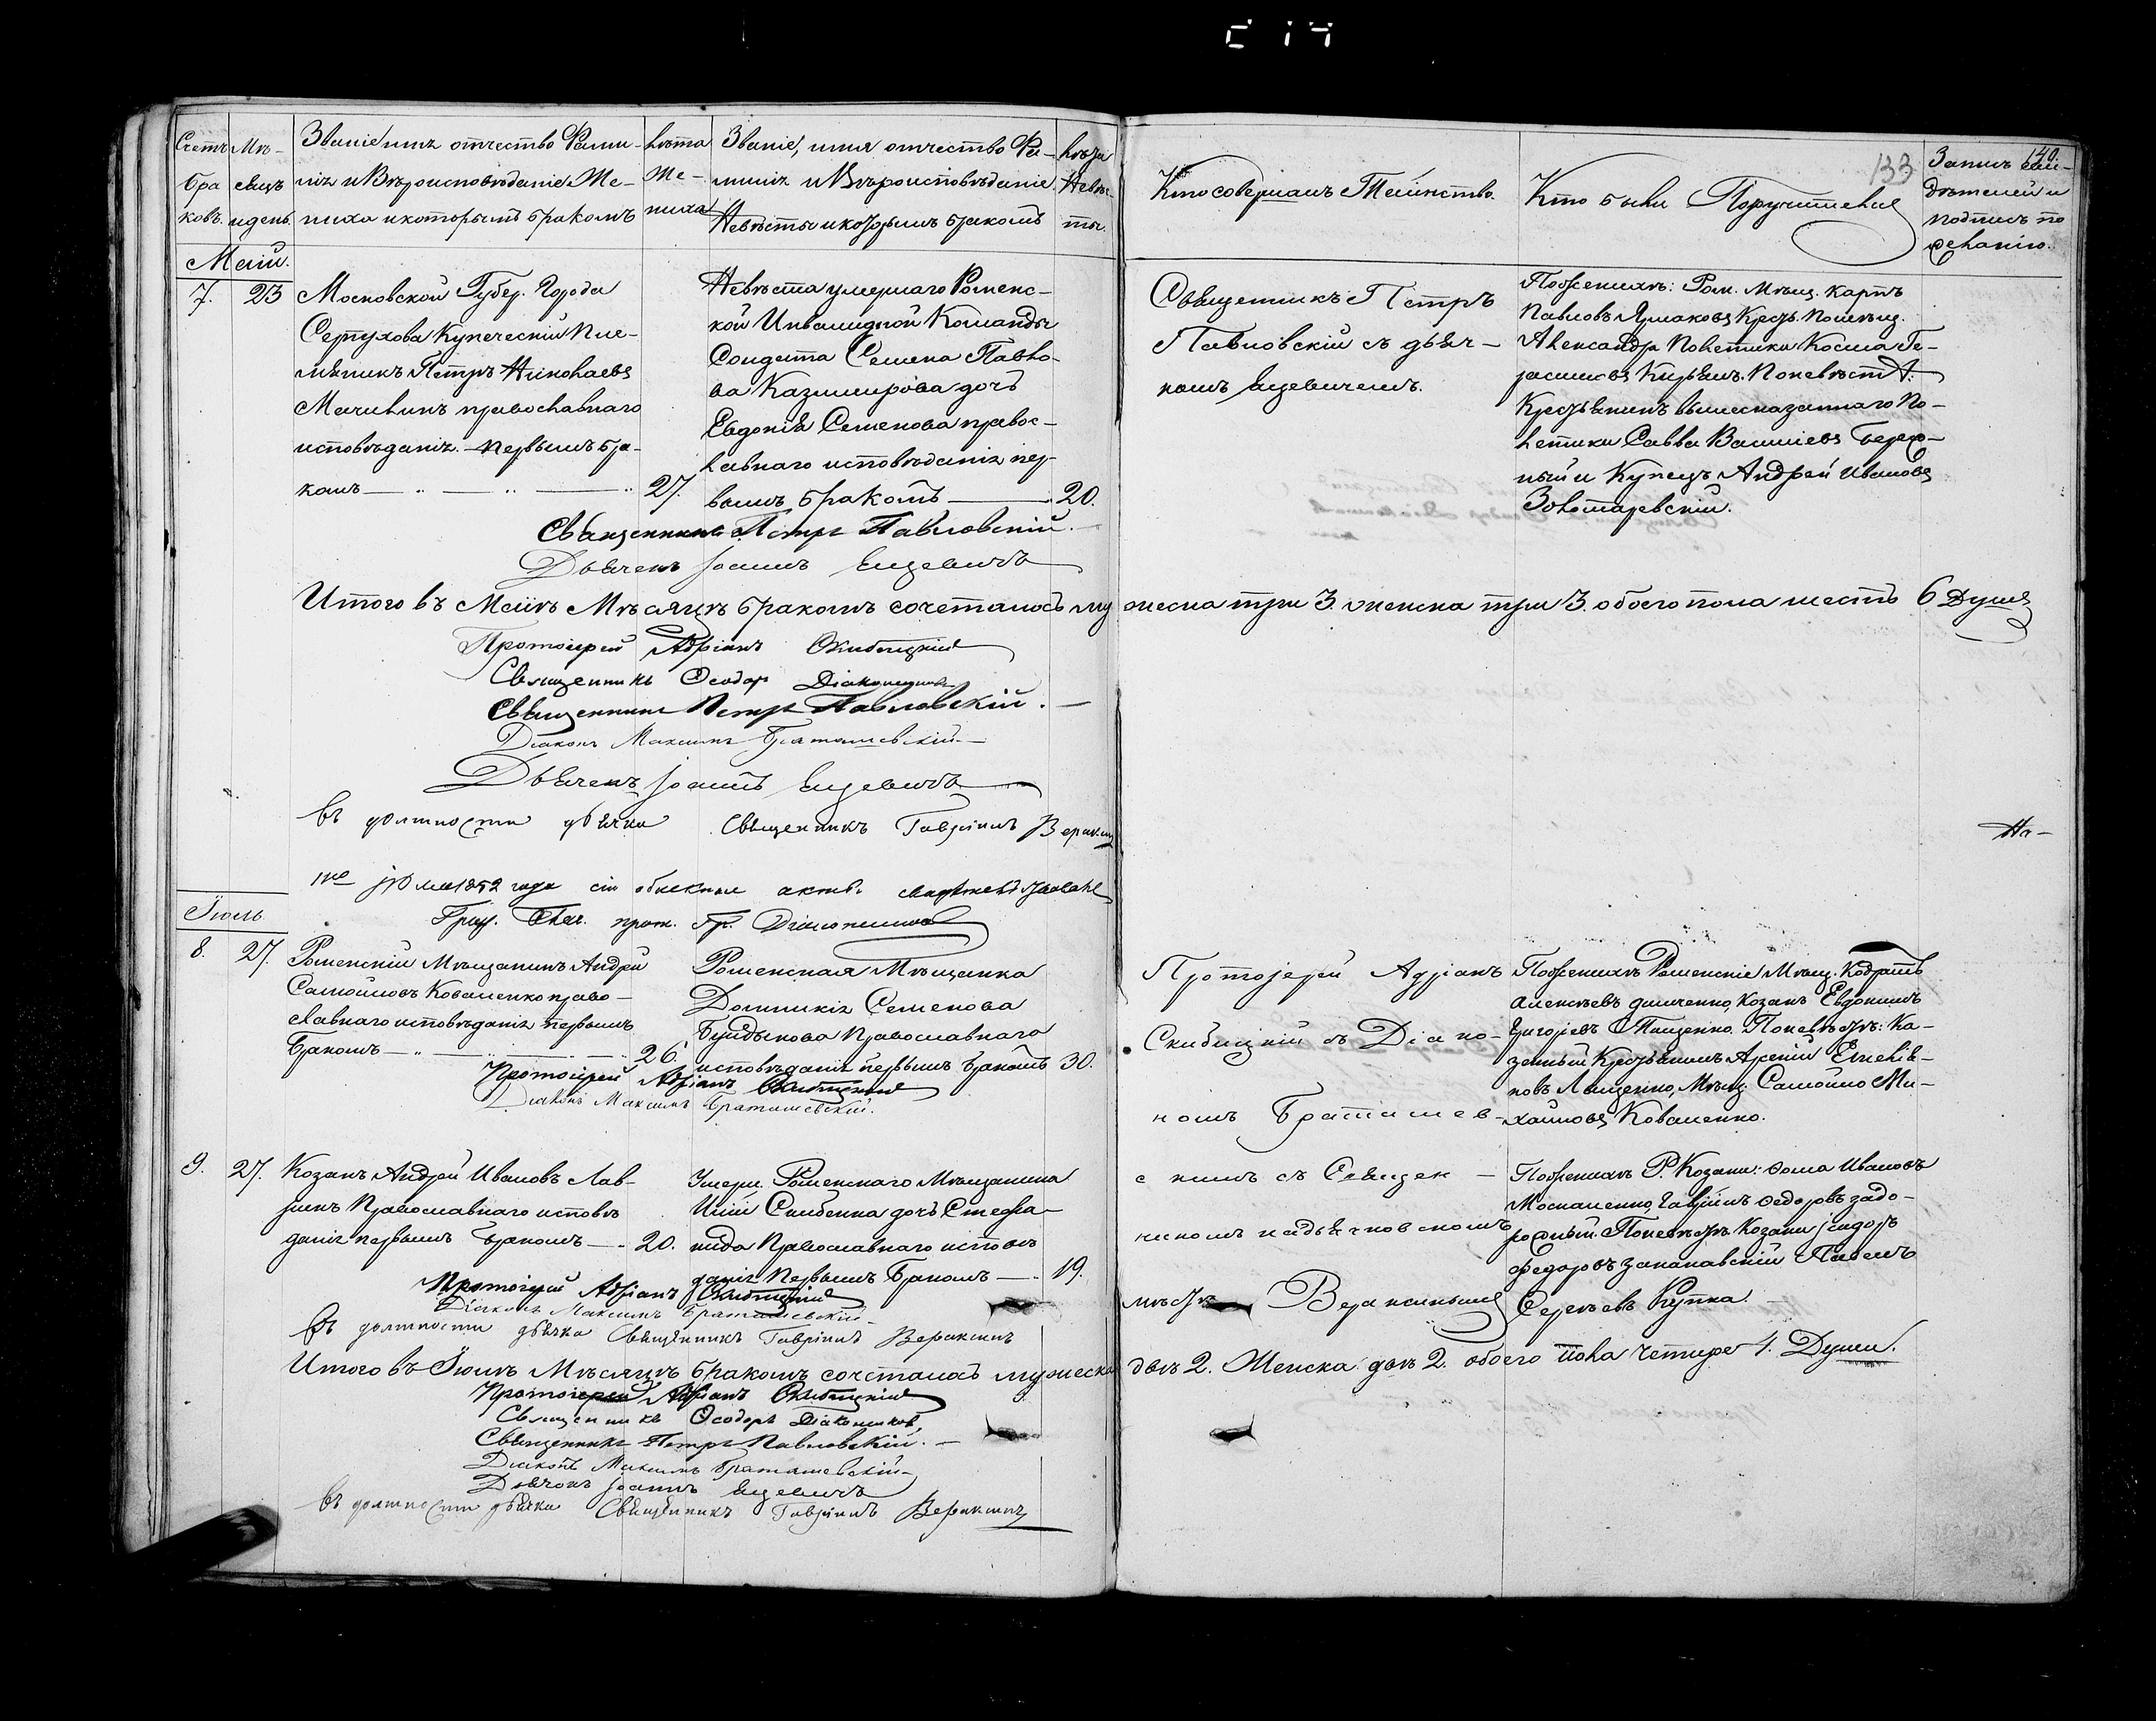 Счетъ
бра
ковъ.
Мѣ-
сяцъ
и день.
Званіе имя отчество Фами-
лія и Вѣроисповѣданіе Же-
ниха и которымъ бракомъ
Лѣта
Же-
ниха
Званіе, имя отчество Фа-
милія и Вѣроисповѣданіе
Невѣсты и которымъ бракомъ
Лѣта
Невѣс-
ты.
Кто совершалъ Таинство.
Кто были Поручители
133
140.
Запись сви-
дѣтелей и
подпись по
желанію.
Маій.
7. 23
Московской Губер. Города
Серпухова Купеческій Пле-
мяникъ Петръ Николаевъ
православнаго
исповѣданія. первымъ бра-
комъ 27.
Невѣста умершаго Роменс-
кой Инвалидной Команды
Солдата Семена Павло-
ва Казимирова дочь
Евдокія Семенова правос-
лавнаго исповѣданія пер-
вымъ бракомъ 20.
Священникъ Петръ
Павловскій съ дьяч-
комъ Яцевичемъ.
По женихѣ: Ром. Мѣщ. Карпъ
Павловъ Ярмаковъ Кресть. Помѣщ.
Александра Полетики Косма Ге-
расимовъ По невѣстѣ:
Крестьянинъ вышесказаннаго По-
летики Савва Васильевъ
и Купецъ Андрей Ивановъ
Золотаревскій.
Священникъ Петръ Павловскій.
Дьячекъ Іоаннъ Яцевичъ
Итого въ Маіѣ Мѣсяцѣ бракомъ сочеталось мужеска три 3. женска три 3. обоего пола шесть 6 Душъ
Протоіерей Адріанъ Скибицкій
Священникъ Ѳеодоръ Діаконенковъ
Священникъ Петръ Павловскій.
Діаконъ Максимъ Браташевскій
Дьячекъ Іоаннъ Яцевичъ
въ должности дьячка Священникъ Гавріилъ Верак
На-
1852 года сіи акты
прот. Гр.
Іюль
8. 27.
Роменскій Мѣщанинъ Андрей
Самойловъ Коваленко право-
славнаго исповѣданія первымъ
бракомъ 26.
Роменская Мѣщанка
Домникія Семенова
Православнаго
исповѣданія первымъ бракомъ 30.
Протоіерей Адріанъ
Скибицкій съ Діако-
номъ Браташев-
По женихѣ Роменскіе Мѣщ. Кодратъ
Алексѣевъ Козакъ Евдокимъ
Григоріевъ Тищенко. По невѣстѣ: Ка-
зенный Крестьянинъ Арсеній Емелія-
новъ Лященко, Мѣщ. Самойло Ми-
хайловъ Коваленко.
Протоіерей Адріанъ Скибицкій
Діаконъ Максимъ Браташевскій.
9. 27.
Козакъ Андрей Ивановъ Лав-
рикъ Православнаго исповѣ
данія первымъ бракомъ 20.
Умерш. Роменскаго Мѣщанина
Иліи Скибенка дочь Стефа-
нида Православнаго исповѣ
данія Первымъ Бракомъ 19.
с кимъ съ Священ-
никомъ на дьячковскомъ
мѣстѣ Вераксинымъ
По женихѣ Р. Козаки: Ѳома Ивановъ
Москаленко, Гавріилъ Ѳедоровъ задо-
рожный. По невѣстѣ. Козаки Ісидоръ
Федоровъ Павелъ
Сергѣевъ Рупка.
Протоіерей Адріанъ Скибицкій
Діаконъ Максимъ Браташевскій
въ должности дьячка Священникъ Гавріилъ Вераксинъ
Итого въ Іюлѣ Мѣсяцѣ бракомъ сочеталось мужеска двѣ 2. Женска двѣ 2. обоего пола четыре 4. Души.
Протоіерей Адріанъ Скибицкій
Священникъ Ѳеодоръ Діаконенковъ
Священникъ Петръ Павловскій.
Діаконъ Максимъ Браташевскій
Дьячокъ Іоаннъ Яцевичъ
въ должности дьячка Священникъ Гавріилъ Вераксинъ